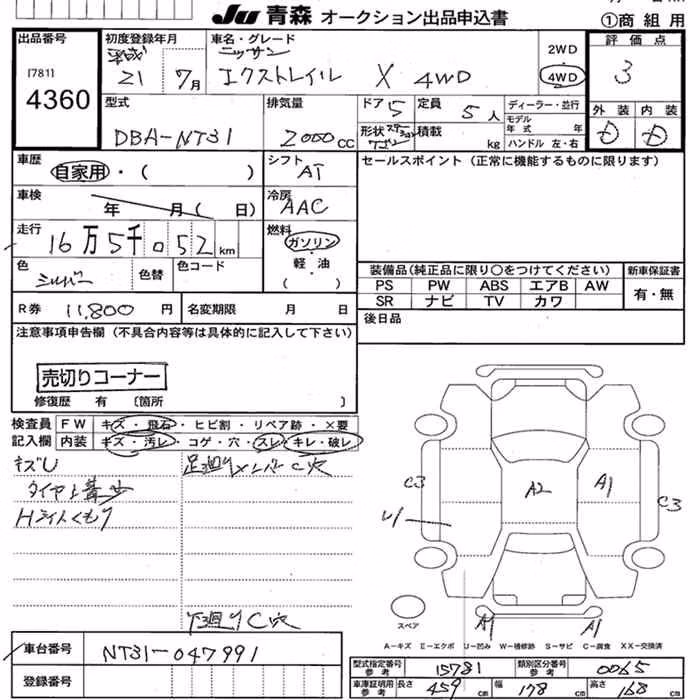 Ju 青森 オークション出品申込書
①商組用
出品番号
[781]
4360
初度登録年月
平成
21 7月
車名・グレード
ニッサン
エクストレイル X 4WD
2WD
4WD
評価点
3
外装 内装
D D
型式
DBA-NT31
排気量
2000cc
ドア 5
定員 5人
形状 ステーション
ワゴン
積載 kg
ディーラー・並行
モデル
年式 年
ハンドル 左・右
車歴
自家用・( )
シフト
AT
セールスポイント (正常に機能するものに限ります)
車検
年 月( 日)
冷房
AAC
走行
16万5千052km
燃料
ガソリン
軽・油
( )
色
シルバー
色替
色コード
装備品(純正品に限り○をつけてください)
PS PW ABS エアB AW
SR ナビ TV カワ
新車保証書
有・無
R券 11,800円
名変期限 月 日
後日品
注意事項申告欄 (不具合内容等は具体的に記入して下さい)
売切りコーナー
修復歴 有 〔箇所 〕
検査員
記入欄
FW キズ・飛石・ヒビ割・リペア跡・×要
内装 キズ・汚レ・コゲ・穴・スレ・キレ・破レ
キズU
足廻りメンバーC穴
Hライトくもり
下廻りC穴
C3
U1
A2
A1
C3
スペア
A1
A1
A-キズ E-エクボ U-凹み W-補修跡 S-サビ C-腐食 XX-交換済
車台番号
NT31-047991
登録番号
型式指定番号
参考
15781
類別区分番号
参考
0065
車庫証明用
参考
長さ 459cm
幅 178cm
高さ 168cm